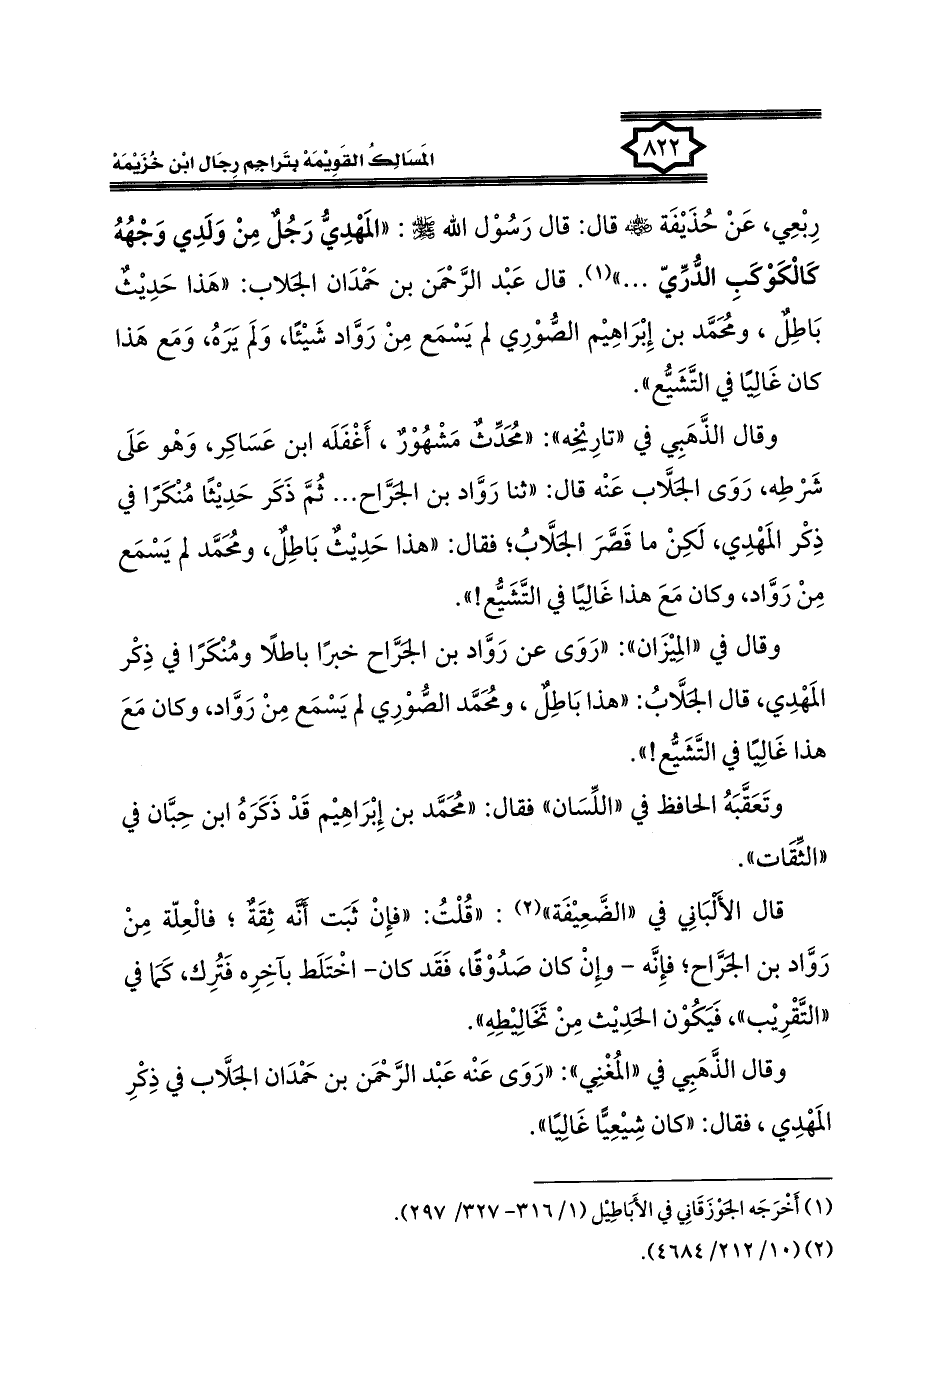 ٨٢٢
المَسَالِكُ القَوِيْمَة بِتَراجِم رِجَال ابْن خُزَيْمَة
رِبْعِي، عَنْ حُذَيْفَة ﷺ قال: قال رَسُوْل الله ﷺ : «المَهْدِيُّ رَجُلٌ مِنْ وَلَدِي وَجْهُهُ
كَالْكَوْكَبِ الدُّرِّيّ ...»(١). قال عَبْد الرَّحْمَن بن حَمْدَان الجَلاب: «هَذا حَدِيْثٌ
بَاطِلٌ ، ومُحَمَّد بن إِبْرَاهِيْم الصُّوْرِي لم يَسْمَع مِنْ رَوَّاد شَيْئًا، وَلَم يَرَهُ، وَمَع هَذا
كان غَالِيًا في التَّشَيُّع».
وقال الذَّهَبِي في «تارِيْخِه»: «مُحَدِّثٌ مَشْهُوْرٌ ، أَغْفَلَه ابن عَسَاكِر، وَهْو عَلَى
شَرْطِه، رَوَى الجَلَّاب عَنْه قال: «ثنا رَوَّاد بن الجَرَّاح... ثُمَّ ذَكَر حَدِيْثًا مُنْكَرًا في
ذِكْر المَهْدِي، لَكِنْ ما قَصَّرَ الجَلَّابُ؛ فقال: «هذا حَدِيْثٌ بَاطِلٌ، ومُحَمَّد لم يَسْمَع
مِنْ رَوَّاد، وكان مَعَ هذا غَالِيًا في التَّشَيُّع!».
وقال في «المِيْزَان»: «رَوَى عن رَوَّاد بن الجَرَّاح خبرًا باطلًا ومُنْكَرًا في ذِكْر
المَهْدِي، قال الجَلَّابُ: «هذا بَاطِلٌ ، ومُحَمَّد الصُّوْرِي لم يَسْمَع مِنْ رَوَّاد، وكان مَعَ
هذا غَالِيًا في التَّشَيُّع!».
وتَعَقَّبَهُ الحافظ في «اللِّسَان» فقال: «مُحَمَّد بن إِبْرَاهِيْم قَدْ ذَكَرَهُ ابن حِبَّان في
«الثِّقَات».
قال الأَلْبَانِي في «الضَّعِيْفَة»(٢) : «قُلْتُ: «فإِنْ ثَبَت أَنَّه ثِقَةٌ ؛ فالْعِلّة مِنْ
رَوَّاد بن الجَرَّاح؛ فإِنَّه - وإِنْ كان صَدُوْقًا، فَقَد كان- اخْتَلَط بآخِرِه فَتُرِك، كَمَا في
«التَّقْرِيْب»، فَيَكُوْن الحَدِيْث مِنْ تَخَالِيْطِهِ».
وقال الذَّهَبِي في «المُغْنِي»: «رَوَى عَنْه عَبْد الرَّحْمَن بن حَمْدَان الجَلَّاب في ذِكْرِ
المَهْدِي ، فقال: «كان شِيْعِيًّا غَالِيًا».
(١) أَخْرَجَه الجَوْزَقَانِي في الأَبَاطِيْل (١/ ٣١٦- ٣٢٧/ ٢٩٧).
(٢) (١٠/ ٢١٢/ ٤٦٨٤).